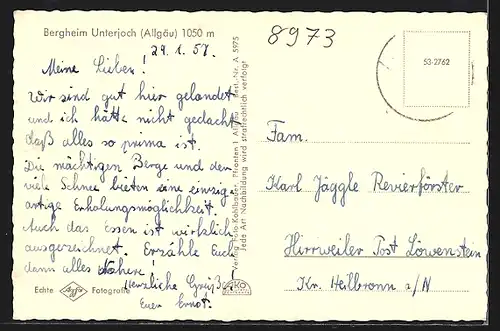 Bergheim Unterjoch (Allgäu) 1050 m
29.1.57.
Meine Lieben!
Wir sind gut hier gelandet
und ich hätte nicht gedacht,
daß alles so prima ist.
Die mächtigen Berge und der
viele Schnee bieten eine einzig-
artige Erholungsmöglichkeit.
Auch das Essen ist wirklich
ausgezeichnet. Erzähle Euch
dann alles näher.
Herzliche Grüße
Euer Ernst.
Echte Agfa Fotografie
Jede Art Nachbildung wird strafrechtlich verfolgt
8973
53-2762
Fam.
Karl Jäggle Revierförster
Hirrweiler Post Löwenstein
Kr. Heilbronn a/N